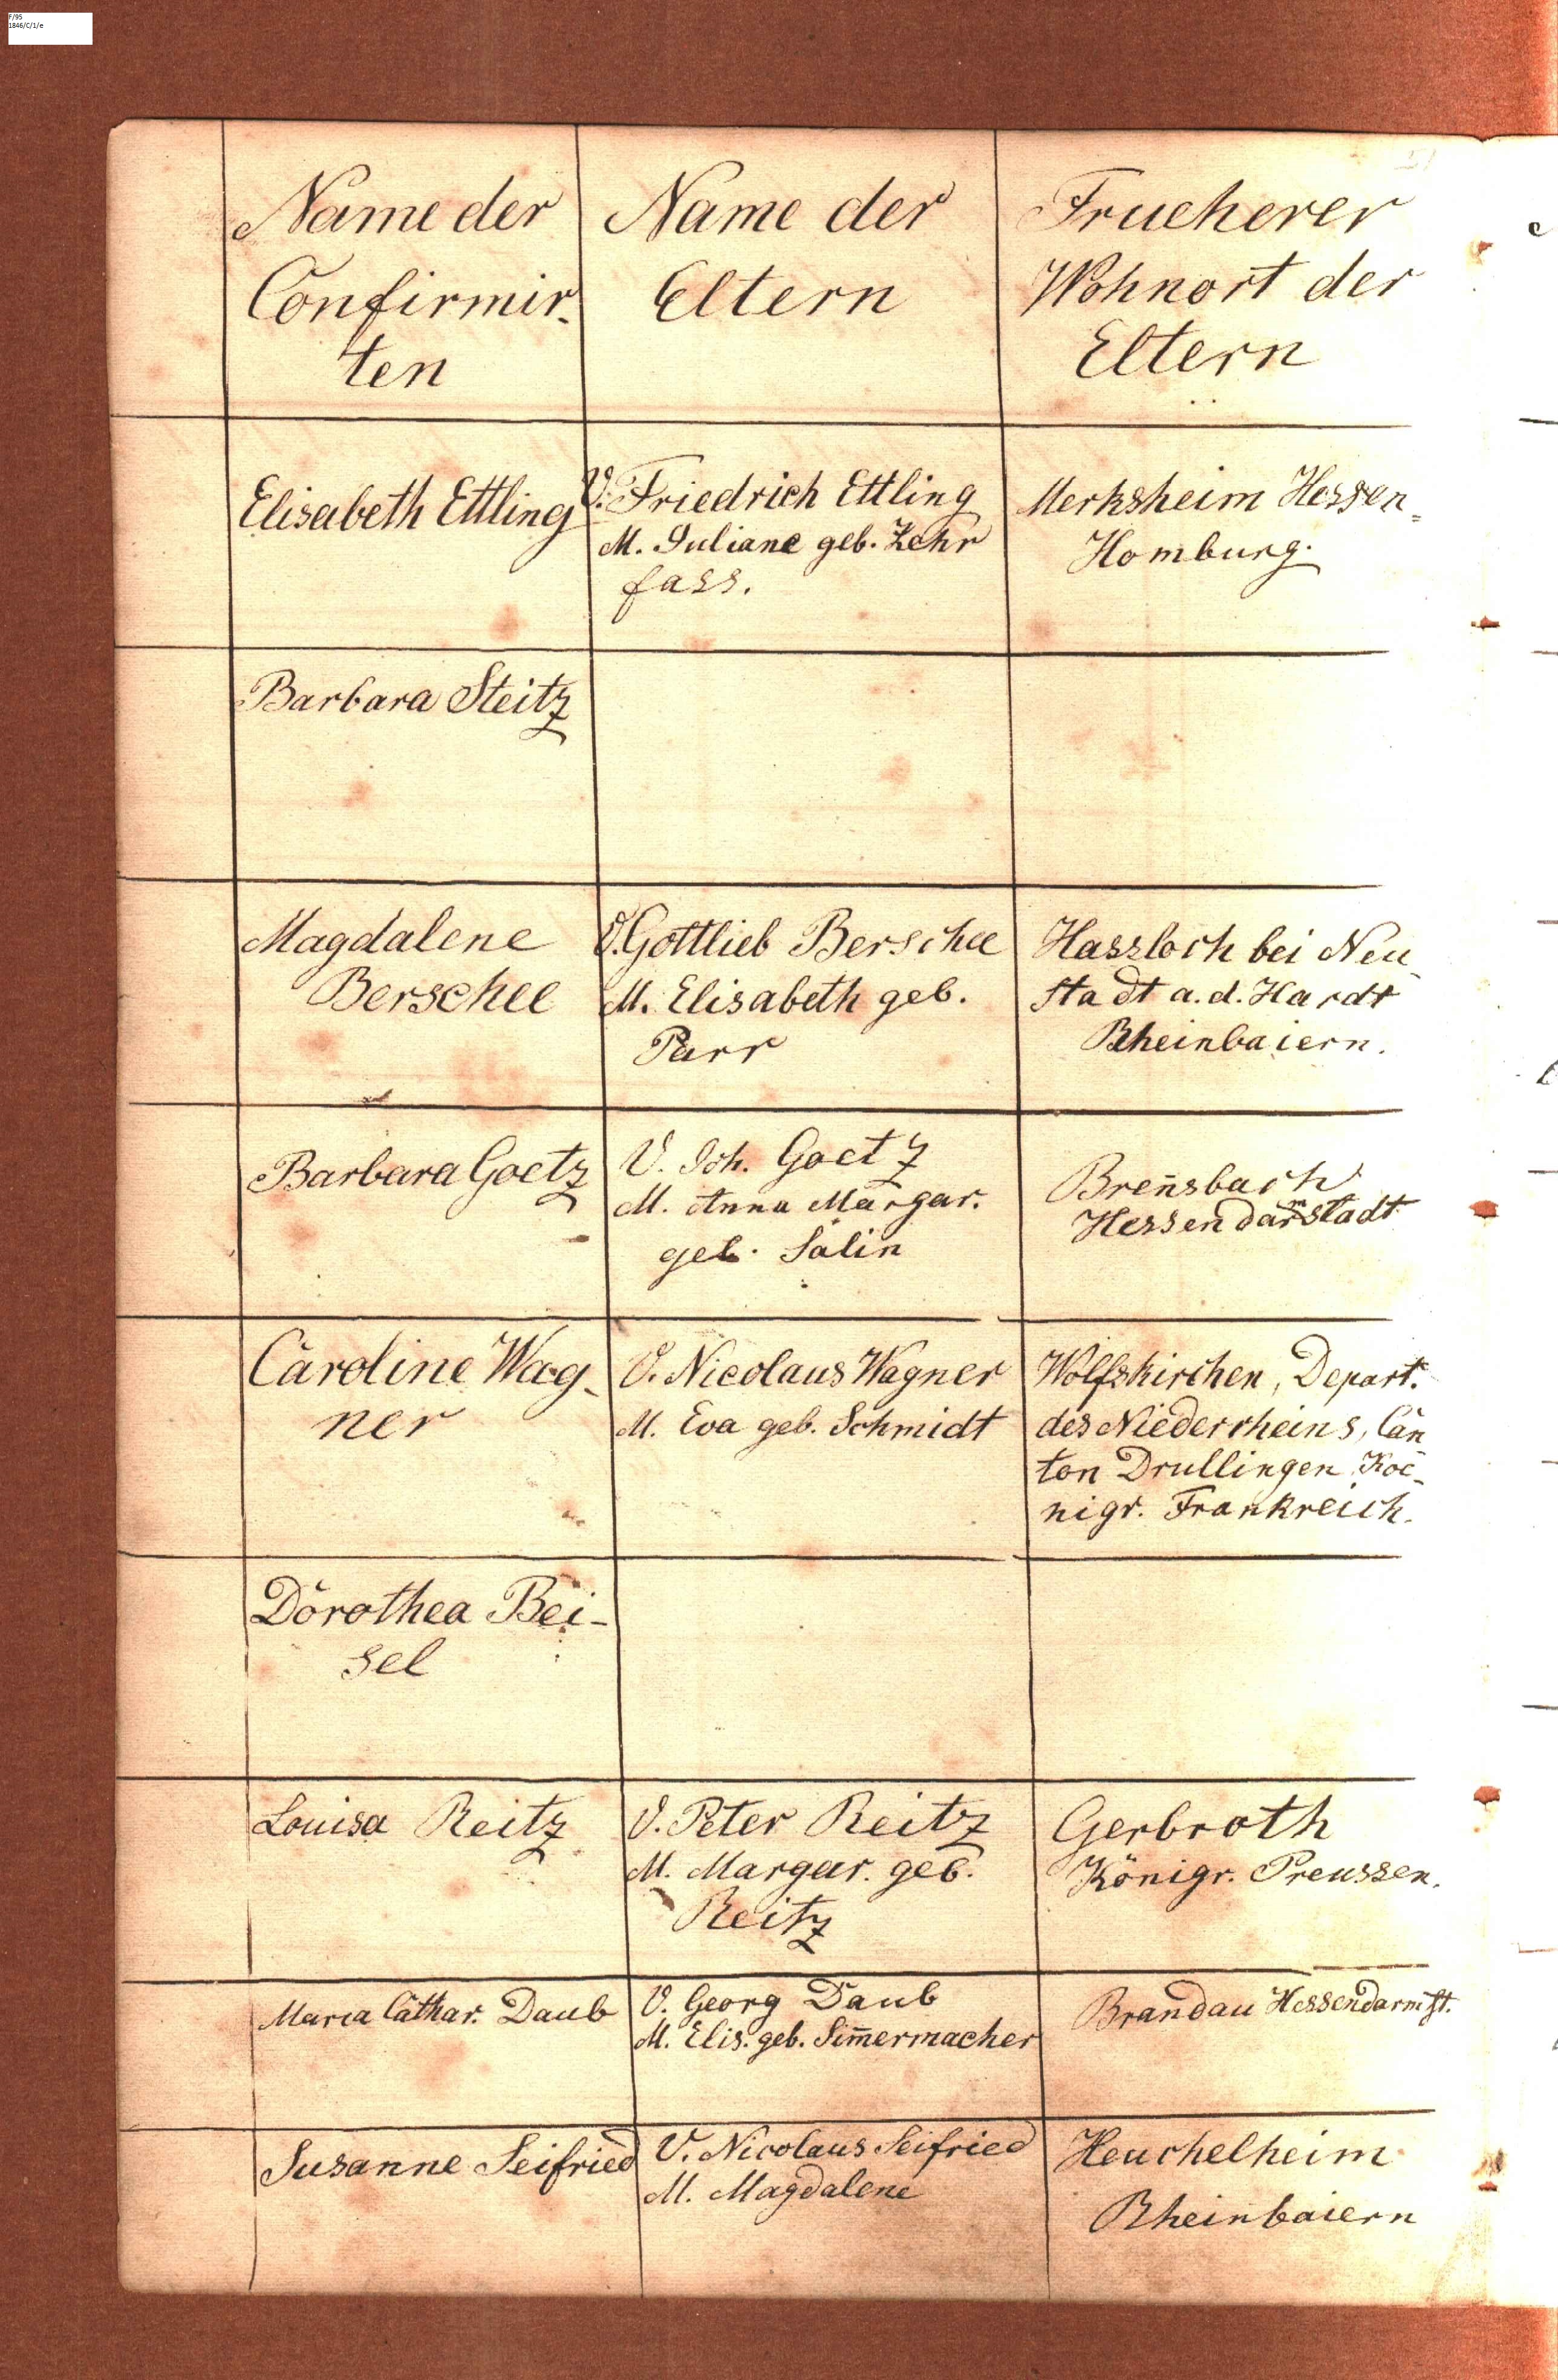 F/95
1846/C/1/e
Name der
Confirmir-
ten
Name der
Eltern
Frueherer
Wohnort der
Eltern
Elisabeth Ettling
V. Friedrich Ettling
M. Juliane geb. Zehr
fass.
Merksheim Hessen=
Homburg.
Barbara Steitz
Magdalene
Berschee
V. Gottlieb Berschee
M. Elisabeth geb.
Parr
Hassloch bei Neu
stadt a. d. Hardt
Rheinbaiern.
Barbara Goetz
V. Joh. Goetz
M. Anna Margar.
geb. Salin
Breñsbach
Hessendarmstadt
Caroline Wag-
ner
V. Nicolaus Wagner
M. Eva geb. Schmidt
Wolfskirchen, Depart.
des Niederrheins, Can
ton Drullingen Koe-
nigr. Frankreich.
Dorothea Bei-
sel
Louisa Reitz
V. Peter Reitz
M. Margar. geb.
Reitz
Gerbroth
Königr. Preussen.
Maria Cathar. Daub
V. Georg Daub
M. Elis. geb. Sim̄ermacher
Brandau Hessendarmst.
Susanne Seifried
V. Nicolaus Seifried
M. Magdalene
Heuchelheim
Rheinbaiern